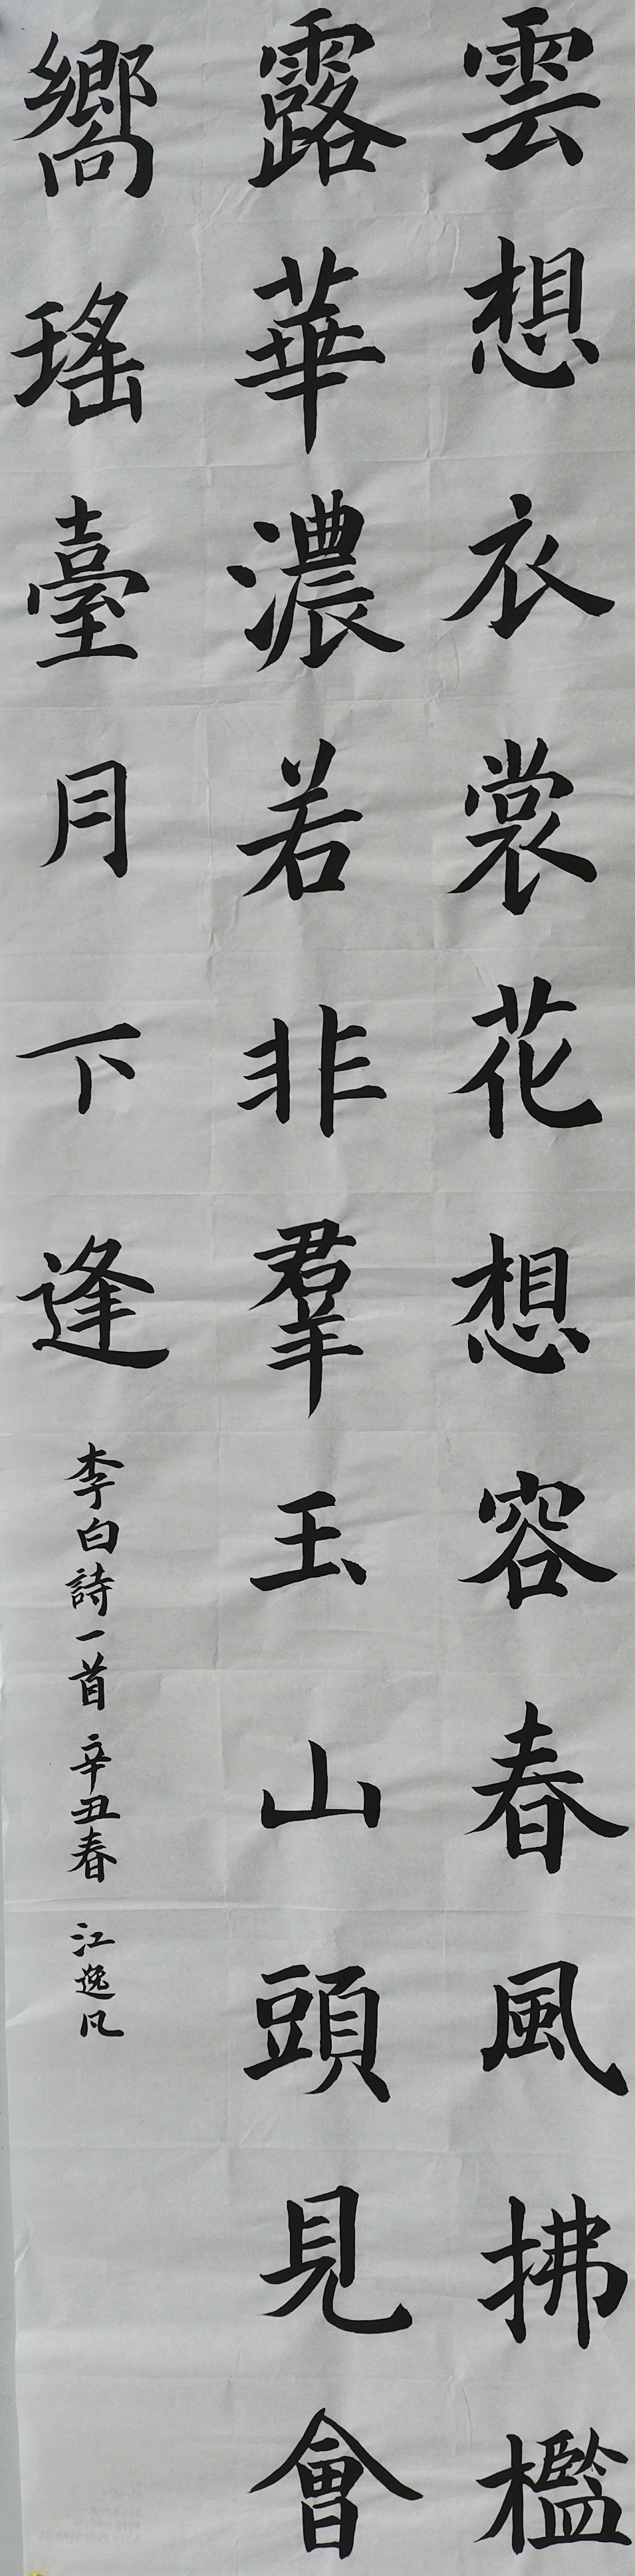 雲想衣裳花想容春風拂檻
露華濃若非羣玉山頭見會
嚮瑤臺月下逢
李白詩一首辛丑春江逸凡